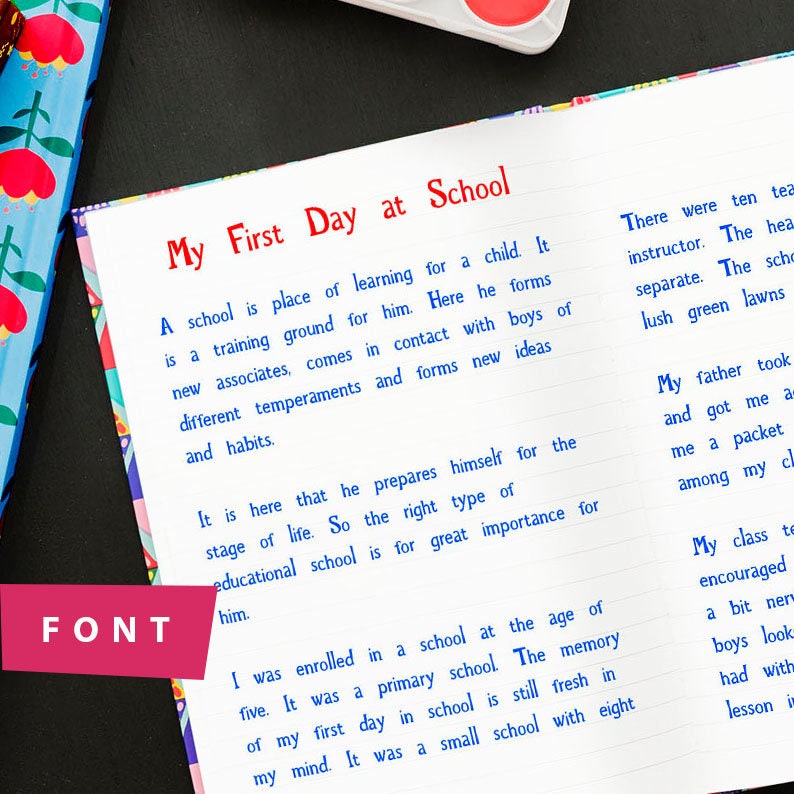 My First Day at School
A school is place of learning for a child. It
is a training ground for him. Here he forms
new associates, comes in contact with boys of
different temperaments and forms new ideas
and habits.
It is here that he prepares himself for the
stage of life. So the right type of
educational school is for great importance for
him.
I was enrolled in a school at the age of
five. It was a primary school. The memory
of my first day in school is still fresh in
my mind. It was a small school with eight
There were ten
instructor. The
separate. The
lush green lawns
My father took
and got me
me a packet
among my
My class
encouraged
a bit
boys
had
lesson
FONT